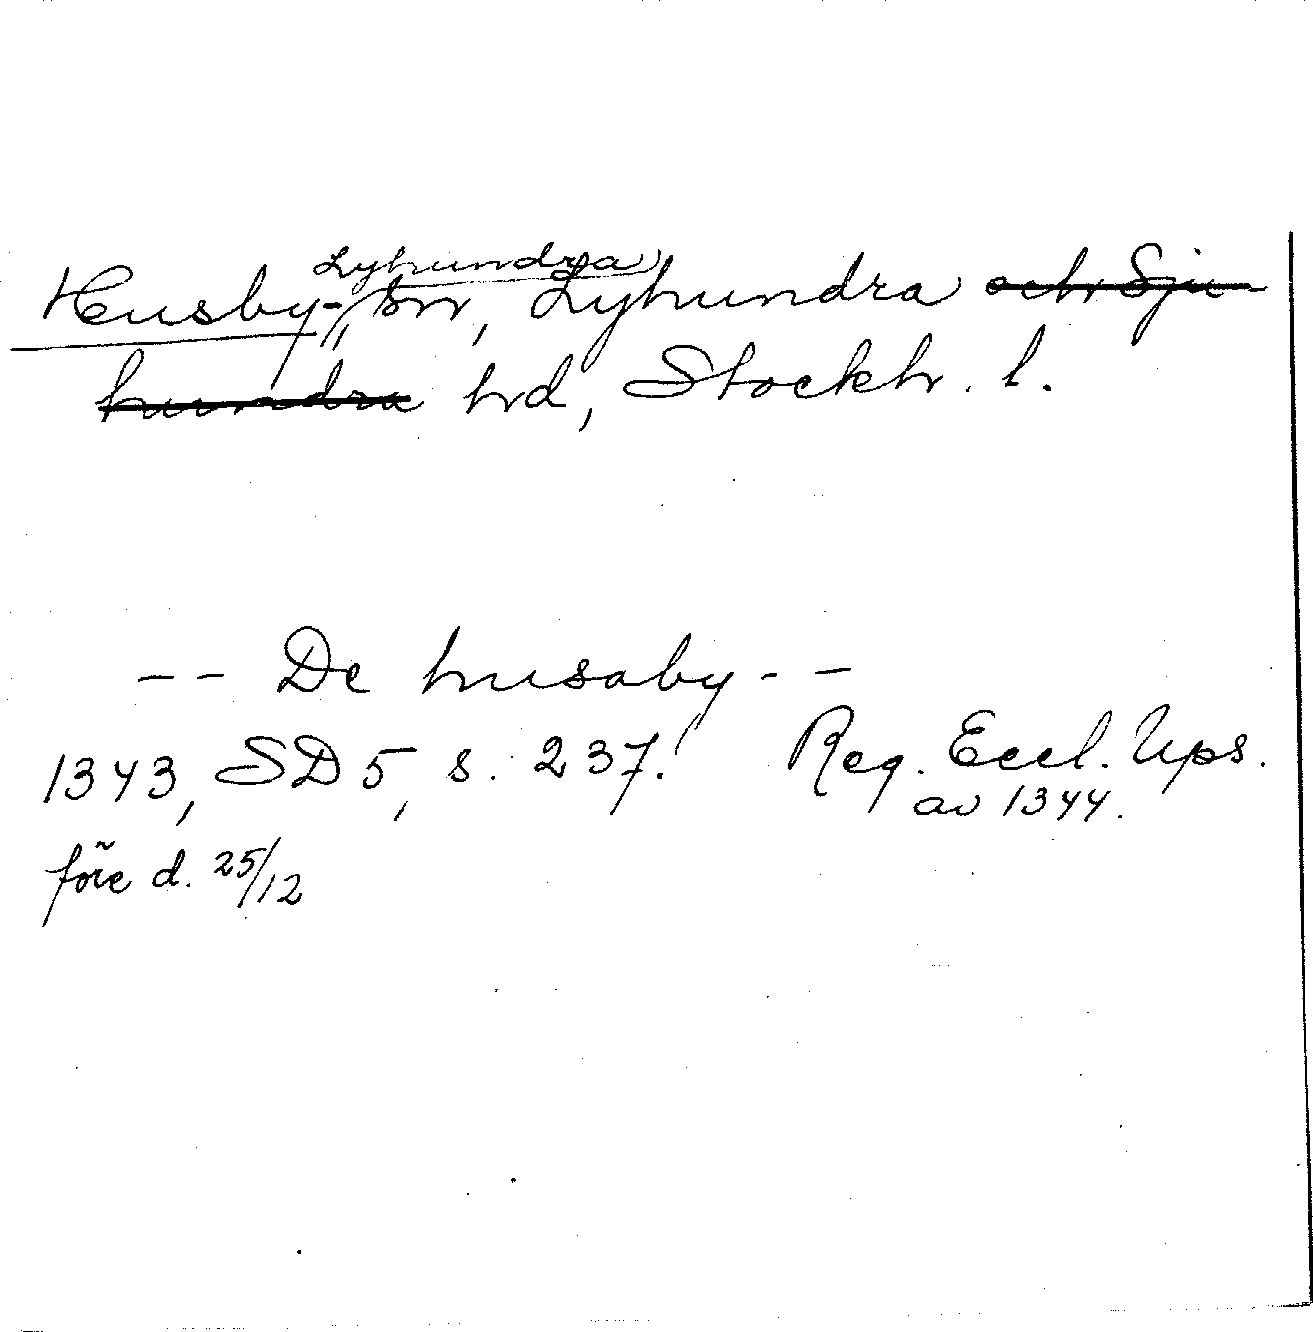 Lyhundra
Husby-, sn, Lyhundra och Sju-
hundra hd, Stockh. l.
-- De husaby --
1343, SD 5, s. 237. Reg. Eccl. Ups.
av 1344.
före d. 25/12